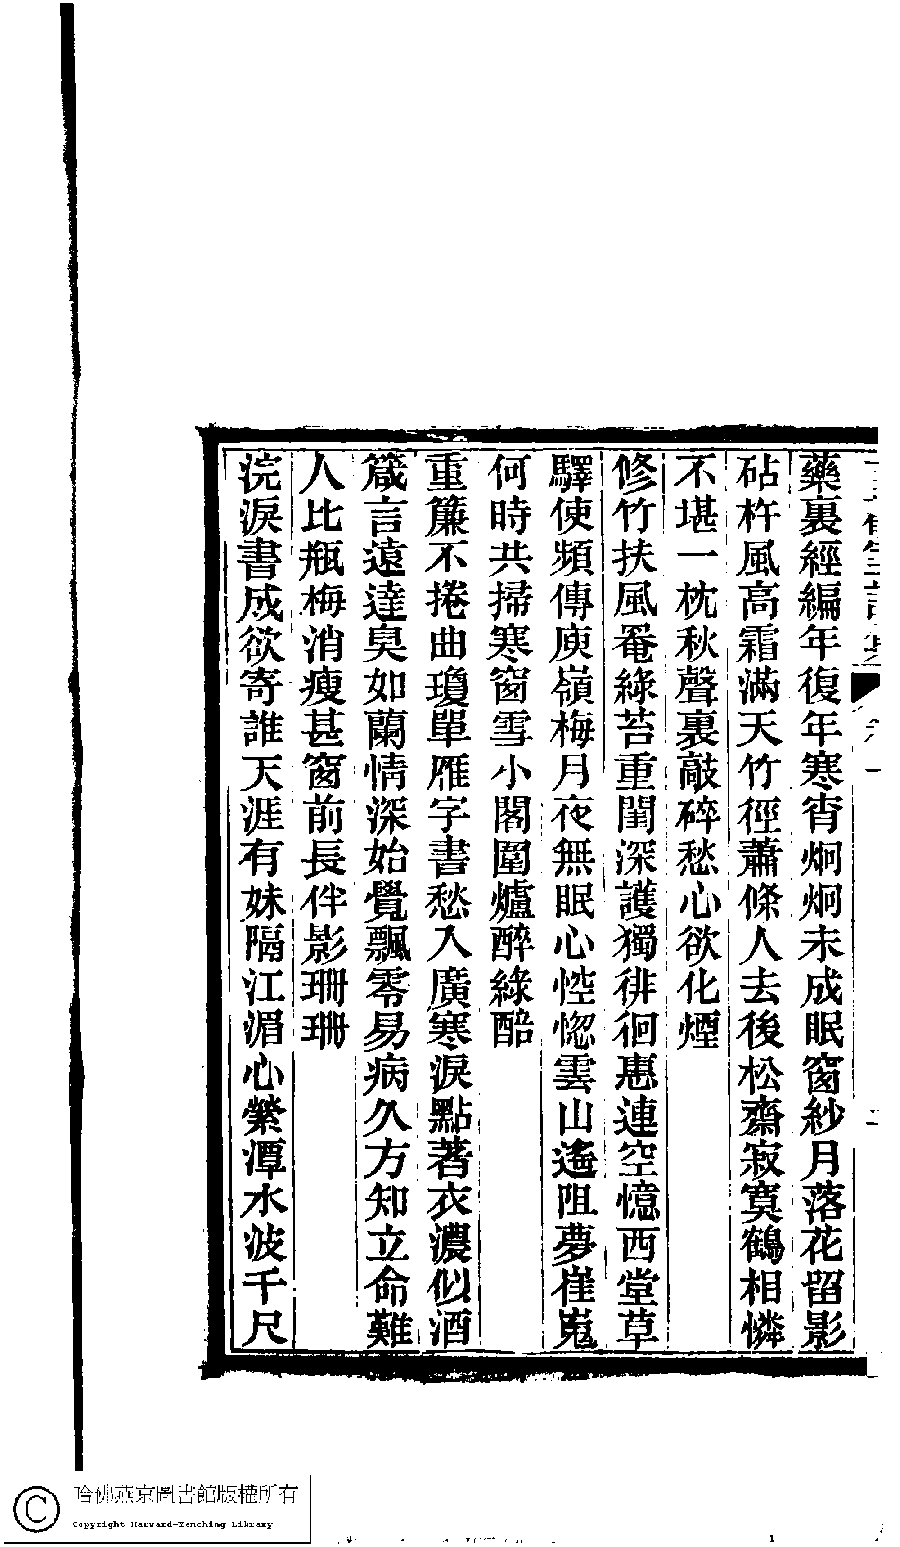 藥裏經編年復年寒宵炯炯未成眠窗紗月落花留影
砧杵風高霜滿天竹徑蕭條人去後松齋寂寞鶴相憐
不堪一枕秋聲裏敲碎愁心欲化煙
修竹扶風罨綠苔重闈深護獨徘徊惠連空憶西堂草
驛使頻傳庾嶺梅月夜無眠心悾惚雲山遙阻夢崔嵬
何時共掃寒窗雪小閣圍爐醉綠醅
重簾不捲曲瓊單雁字書愁入廣寒淚點著衣濃似酒
箴言遠達臭如蘭情深始覺飄零易病久方知立命難
人比瓶梅消瘦甚窗前長伴影珊珊
浣淚書成欲寄誰天涯有妹隔江湄心縈潭水波千尺
哈佛燕京圖書館版權所有
Copyright Harvard-Yenching Library